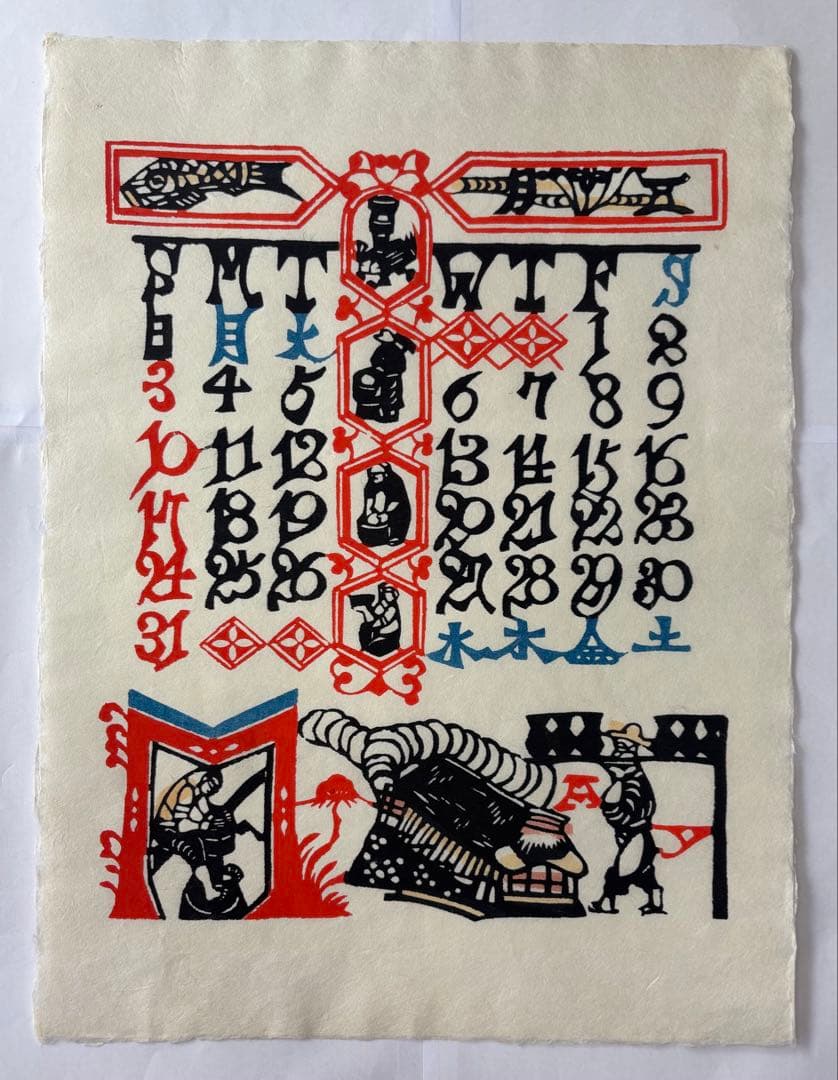 五月
S M T W T F S
日 月 火 1 2
3 4 5 6 7 8 9
10 11 12 13 14 15 16
17 18 19 20 21 22 23
24 25 26 27 28 29 30
31 水 木 金 土
M A Y